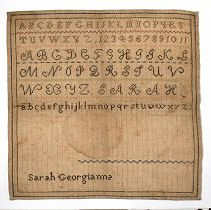 ABCDEFGHIJKLMNOPQRS
TUVWXYZ.1234567891011
ABCDEFGHIKL
MNOPQRSTUV
WXYZ SARAH
abcdefghijklmnopqrstuvwxyz
Sarah Georgianna